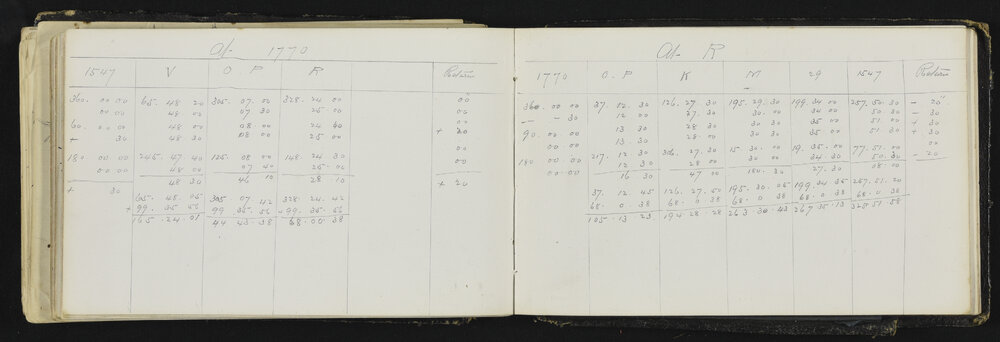 At 1770
1547 V O.P R Return
360. 00 00 65. 48 20 305. 07. 00 328. 24 00 00
00 00 48 00 07 30 25 00 00
60. 00 00 48 00 08 00 24 00
+ 30 48 00 08 00 25 00 + 20
180. 00 00 245. 47 40 125. 08 00 148. 24 30 00
00. 00 48 00 07 40 25. 00 00
48 30 46. 10 28. 10
+ 30 + 20
65. 48. 05 305 07. 42 328. 24. 42
+ 99. 35 56 99. 35. 56 + 99. 35. 56
165. 24. 01 44 43. 38 68. 00 38
At R
1770 O.P K M 29 1547 Return
360 00 00 37. 12. 30 126. 27. 30 195. 29. 30 199. 34 00 257. 50. 30 - 20
- - 30 12 00 27. 30 30. 00 34 00 50. 00 - 30
90. 00. 00 13 30 28 00 30 30 35 00 51. 00 + 30
13. 30 28. 00 30 30 35 00 51. 30 + 30
180 00 00 217. 12 30 306. 27. 30 15 30. 00 19. 35. 00 77. 51 00 00
00. 00 12 30 28 00 34 30 50. 30 - 20
16 30 47 00 180. 30 27. 30 08 00
37. 12. 45 126. 27. 50 195. 30. 05 199. 34 35 257. 51. 20
68. 0. 38 68. 0 38 68. 0 38 68. 0 38 68. 0. 38
105. 13. 23 194 28. 28 263. 30. 43 267 35. 13 325. 51. 58